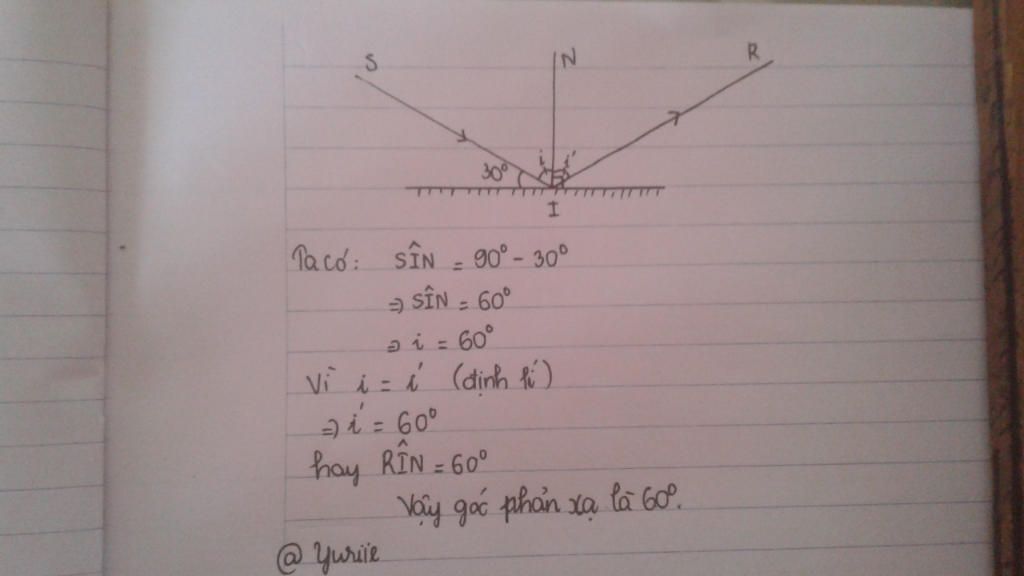 S N R
30° i i'
I
Ta có: SÎN = 90° - 30°
⇒ SÎN = 60°
⇒ i = 60°
Vì i = i' (định lí)
⇒ i' = 60°
hay RÎN = 60°
Vậy góc phản xạ là 60°.
@ Yuriïe